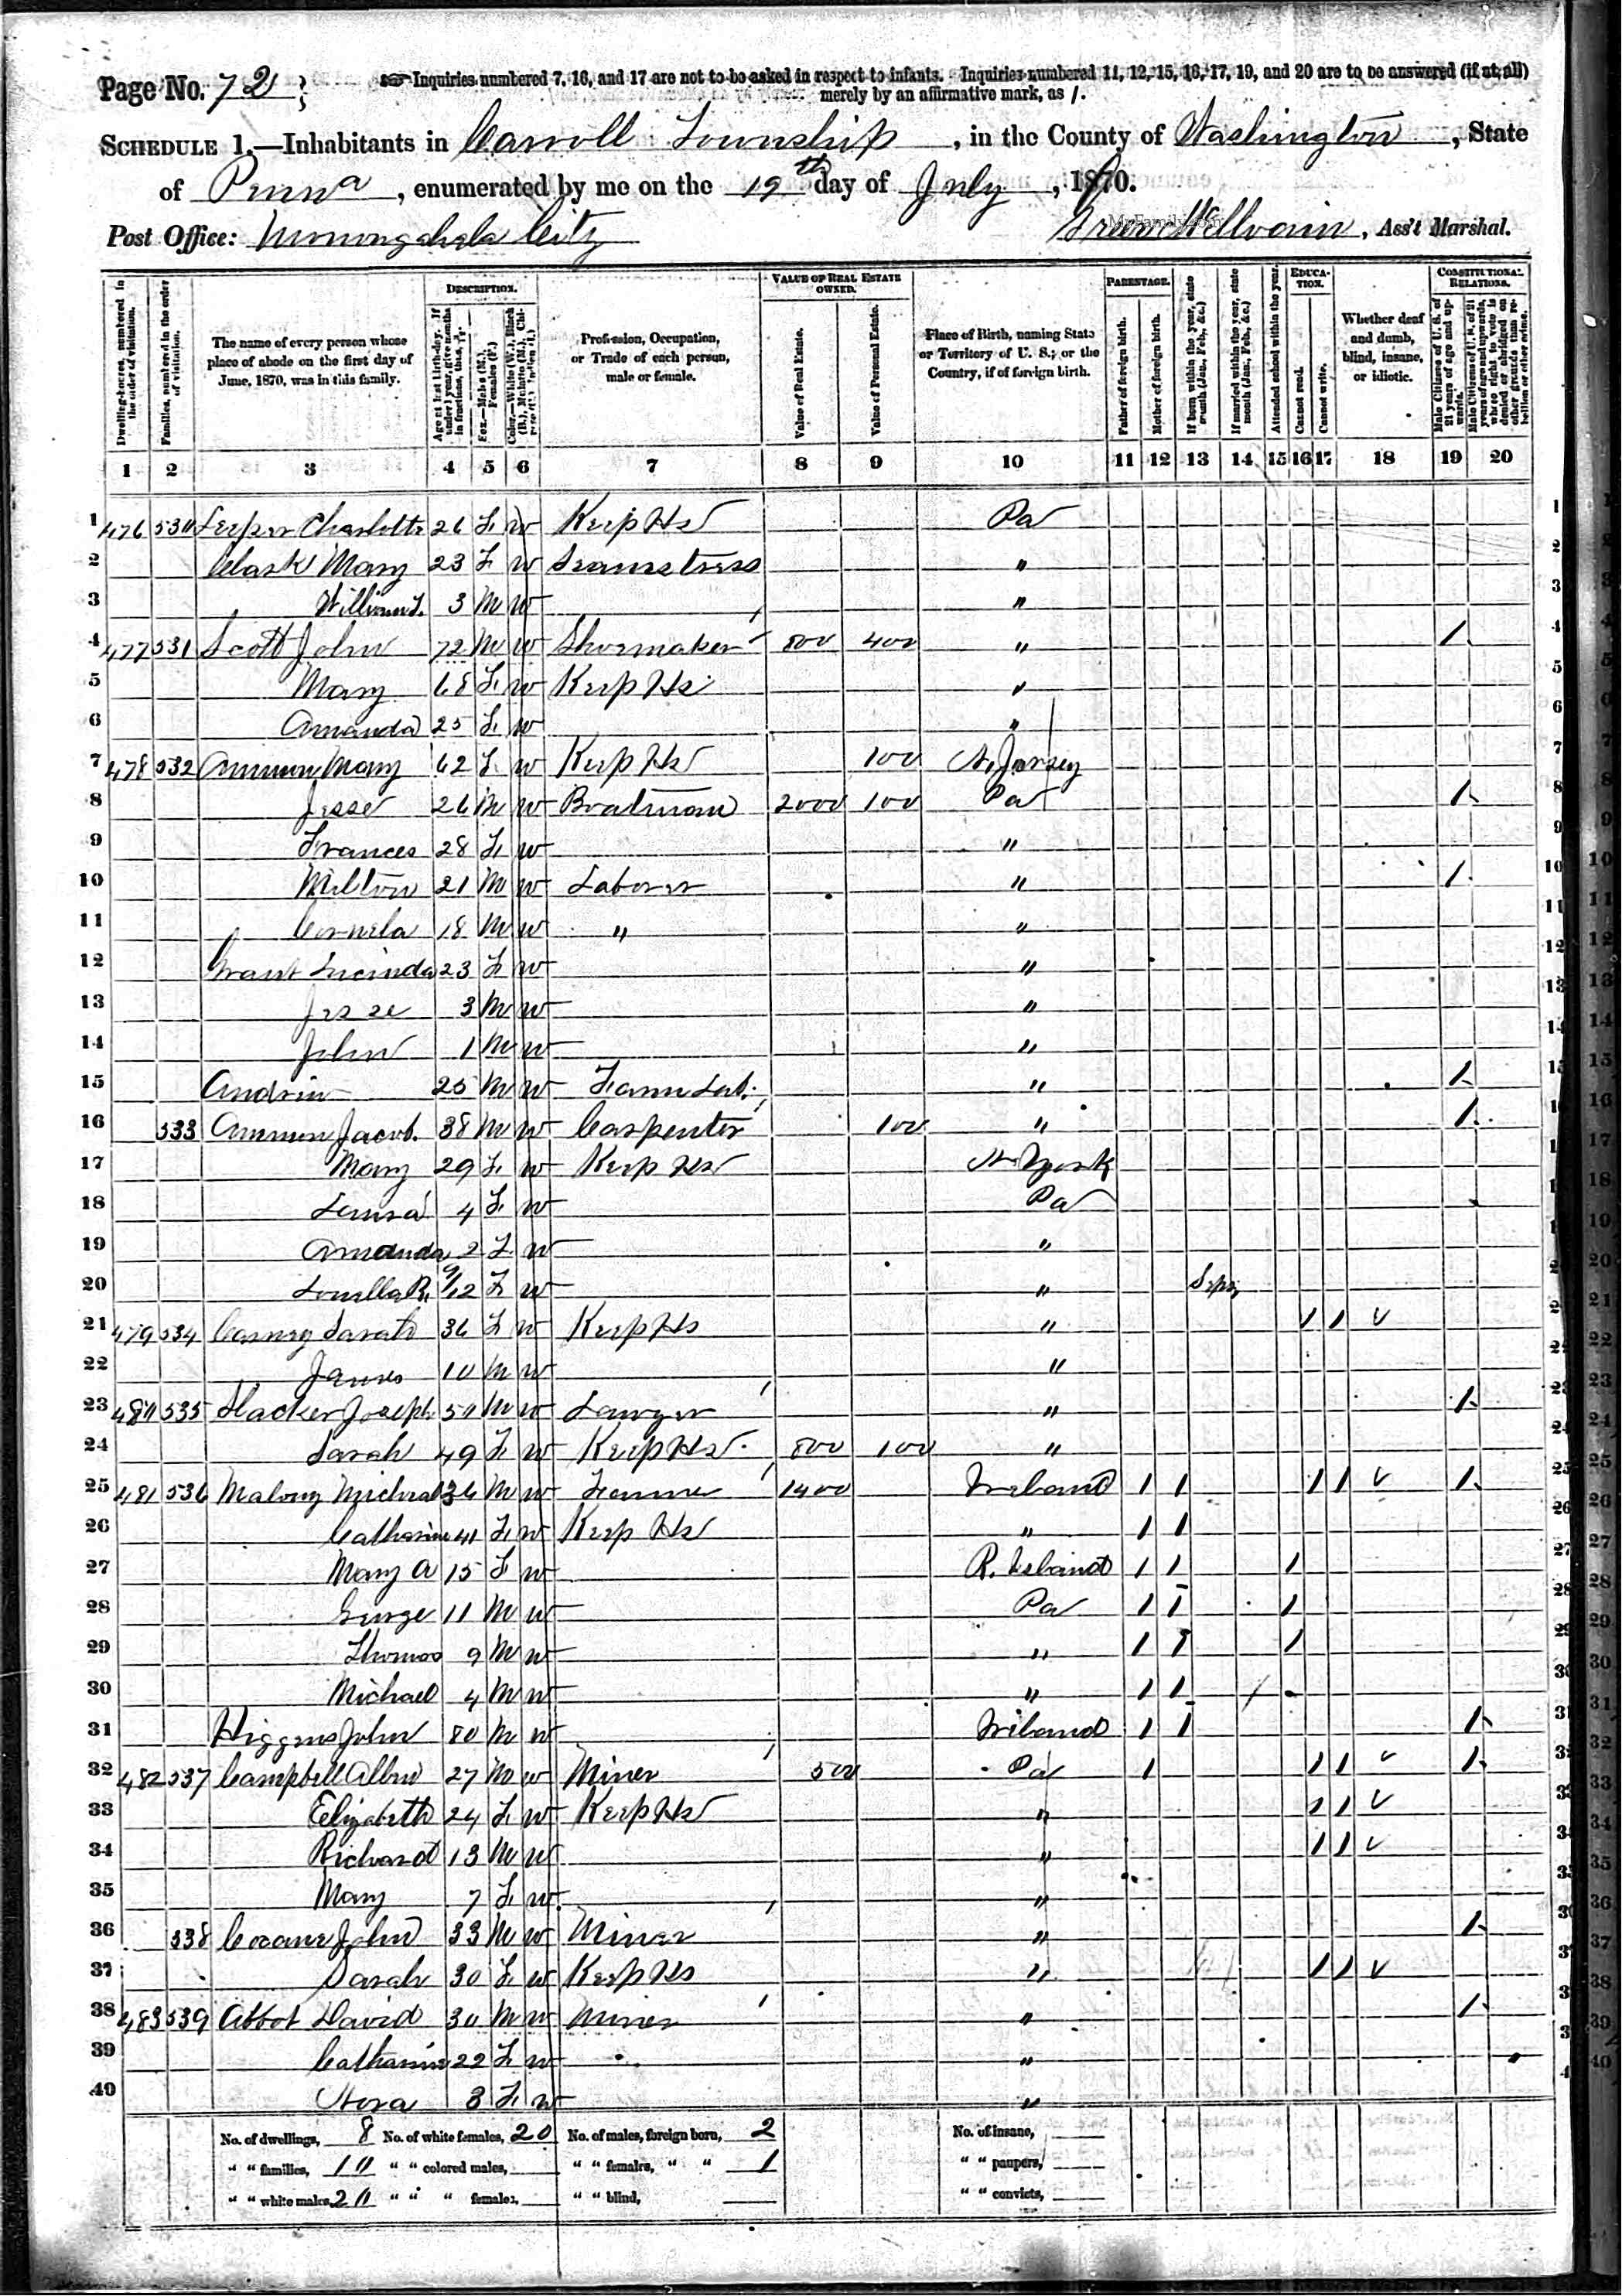 Page No. 72
Inquiries numbered 7, 16, and 17 are not to be asked in respect to infants. Inquiries numbered 11, 12, 15, 16, 17, 19, and 20 are to be answered (if at all)
merely by an affirmative mark, as /.
SCHEDULE 1.—Inhabitants in Carroll Township, in the County of Washington, State
of Penna, enumerated by me on the 19th day of July, 1870.
Post Office: Monongahela City
MyFamily.com
McIlvain, Ass't Marshal.
Dwelling-houses, numbered in the order of visitation.
Families, numbered in the order of visitation.
The name of every person whose place of abode on the first day of June, 1870, was in this family.
DESCRIPTION.
Age at last birth-day. If under 1 year, give months in fractions, thus, 3/12.
Sex.—Males (M.), Females (F.)
Color.—White (W.), Black (B.), Mulatto (M.), Chinese (C.), Indian (I.)
Profession, Occupation, or Trade of each person, male or female.
VALUE OF REAL ESTATE OWNED.
Value of Real Estate.
Value of Personal Estate.
Place of Birth, naming State or Territory of U. S.; or the Country, if of foreign birth.
PARENTAGE.
Father of foreign birth.
Mother of foreign birth.
If born within the year, state month (Jan., Feb., &c.)
If married within the year, state month (Jan., Feb., &c.)
Attended school within the year.
EDUCATION.
Cannot read.
Cannot write.
Whether deaf and dumb, blind, insane, or idiotic.
CONSTITUTIONAL RELATIONS.
Male Citizens of U. S. of 21 years of age and upwards.
Male Citizens of U. S. of 21 years of age and upwards, whose right to vote is denied or abridged on other grounds than rebellion or other crime.
1 2 3 4 5 6 7 8 9 10 11 12 13 14 15 16 17 18 19 20
1 476 530 Charlotte 26 F W Keep Hs Pa 1
2 Clark Mary 23 F W Seamstress " 2
3 William 3 M W " 3
4 477 531 Scott John 72 M W Shoemaker 800 400 " / 4
5 Mary 68 F W Keep Hs " 5
6 Amanda 25 F W " 6
7 478 532 Ammon Mary 62 F W Keep Hs 100 N. Jersey 7
8 Jesse 26 M W Boatman 2000 100 Pa / 8
9 Frances 28 F W " 9
10 Milton 21 M W Laborer " / 10
11 Cornela 18 M W " " 11
12 Grant Lucinda 23 F W " 12
13 Jesse 3 M W " 13
14 John 1 M W " 14
15 Andrew 25 M W Farm Lab. " /
16 533 Ammon Jacob 38 M W Carpenter 100 " /
17 Mary 29 F W Keep Hs N York
18 Laura 4 F W Pa
19 Amanda 2 F W "
20 Louella R. 9/12 F W " Sep
21 479 534 Carney Sarah 36 F W Keep Hs " / / v
22 James 10 M W "
23 480 535 Hacker Joseph 50 M W Lawyer " /
24 Sarah 49 F W Keep Hs 800 100 "
25 481 536 Malony Michael 36 M W Farmer 1400 Ireland / / / / v /
26 Catharine 41 F W Keep Hs " / /
27 Mary A 15 F W R. Island / / /
28 George 11 M W Pa / / /
29 Thomas 9 M W " / / /
30 Michael 4 M W " / /
31 Higgins John 80 M W Ireland / / /
32 482 537 Campbell 27 M W Miner 500 Pa / / / v /
33 Elizabeth 24 F W Keep Hs " / / v
34 Richard 13 M W " / / v
35 Mary 7 F W "
36 538 John 33 M W Miner " /
37 Sarah 30 F W Keep Hs " / / v
38 483 539 Abbot David 30 M W Miner " /
39 Catharine 22 F W "
40 Nora 3 F W "
No. of dwellings, 8 No. of white females, 20 No. of males, foreign born, 2 No. of insane,
" " families, 10 " " colored males, " " females, " " 1 " " paupers,
" " white males, 20 " " " females, " " blind, " " convicts,